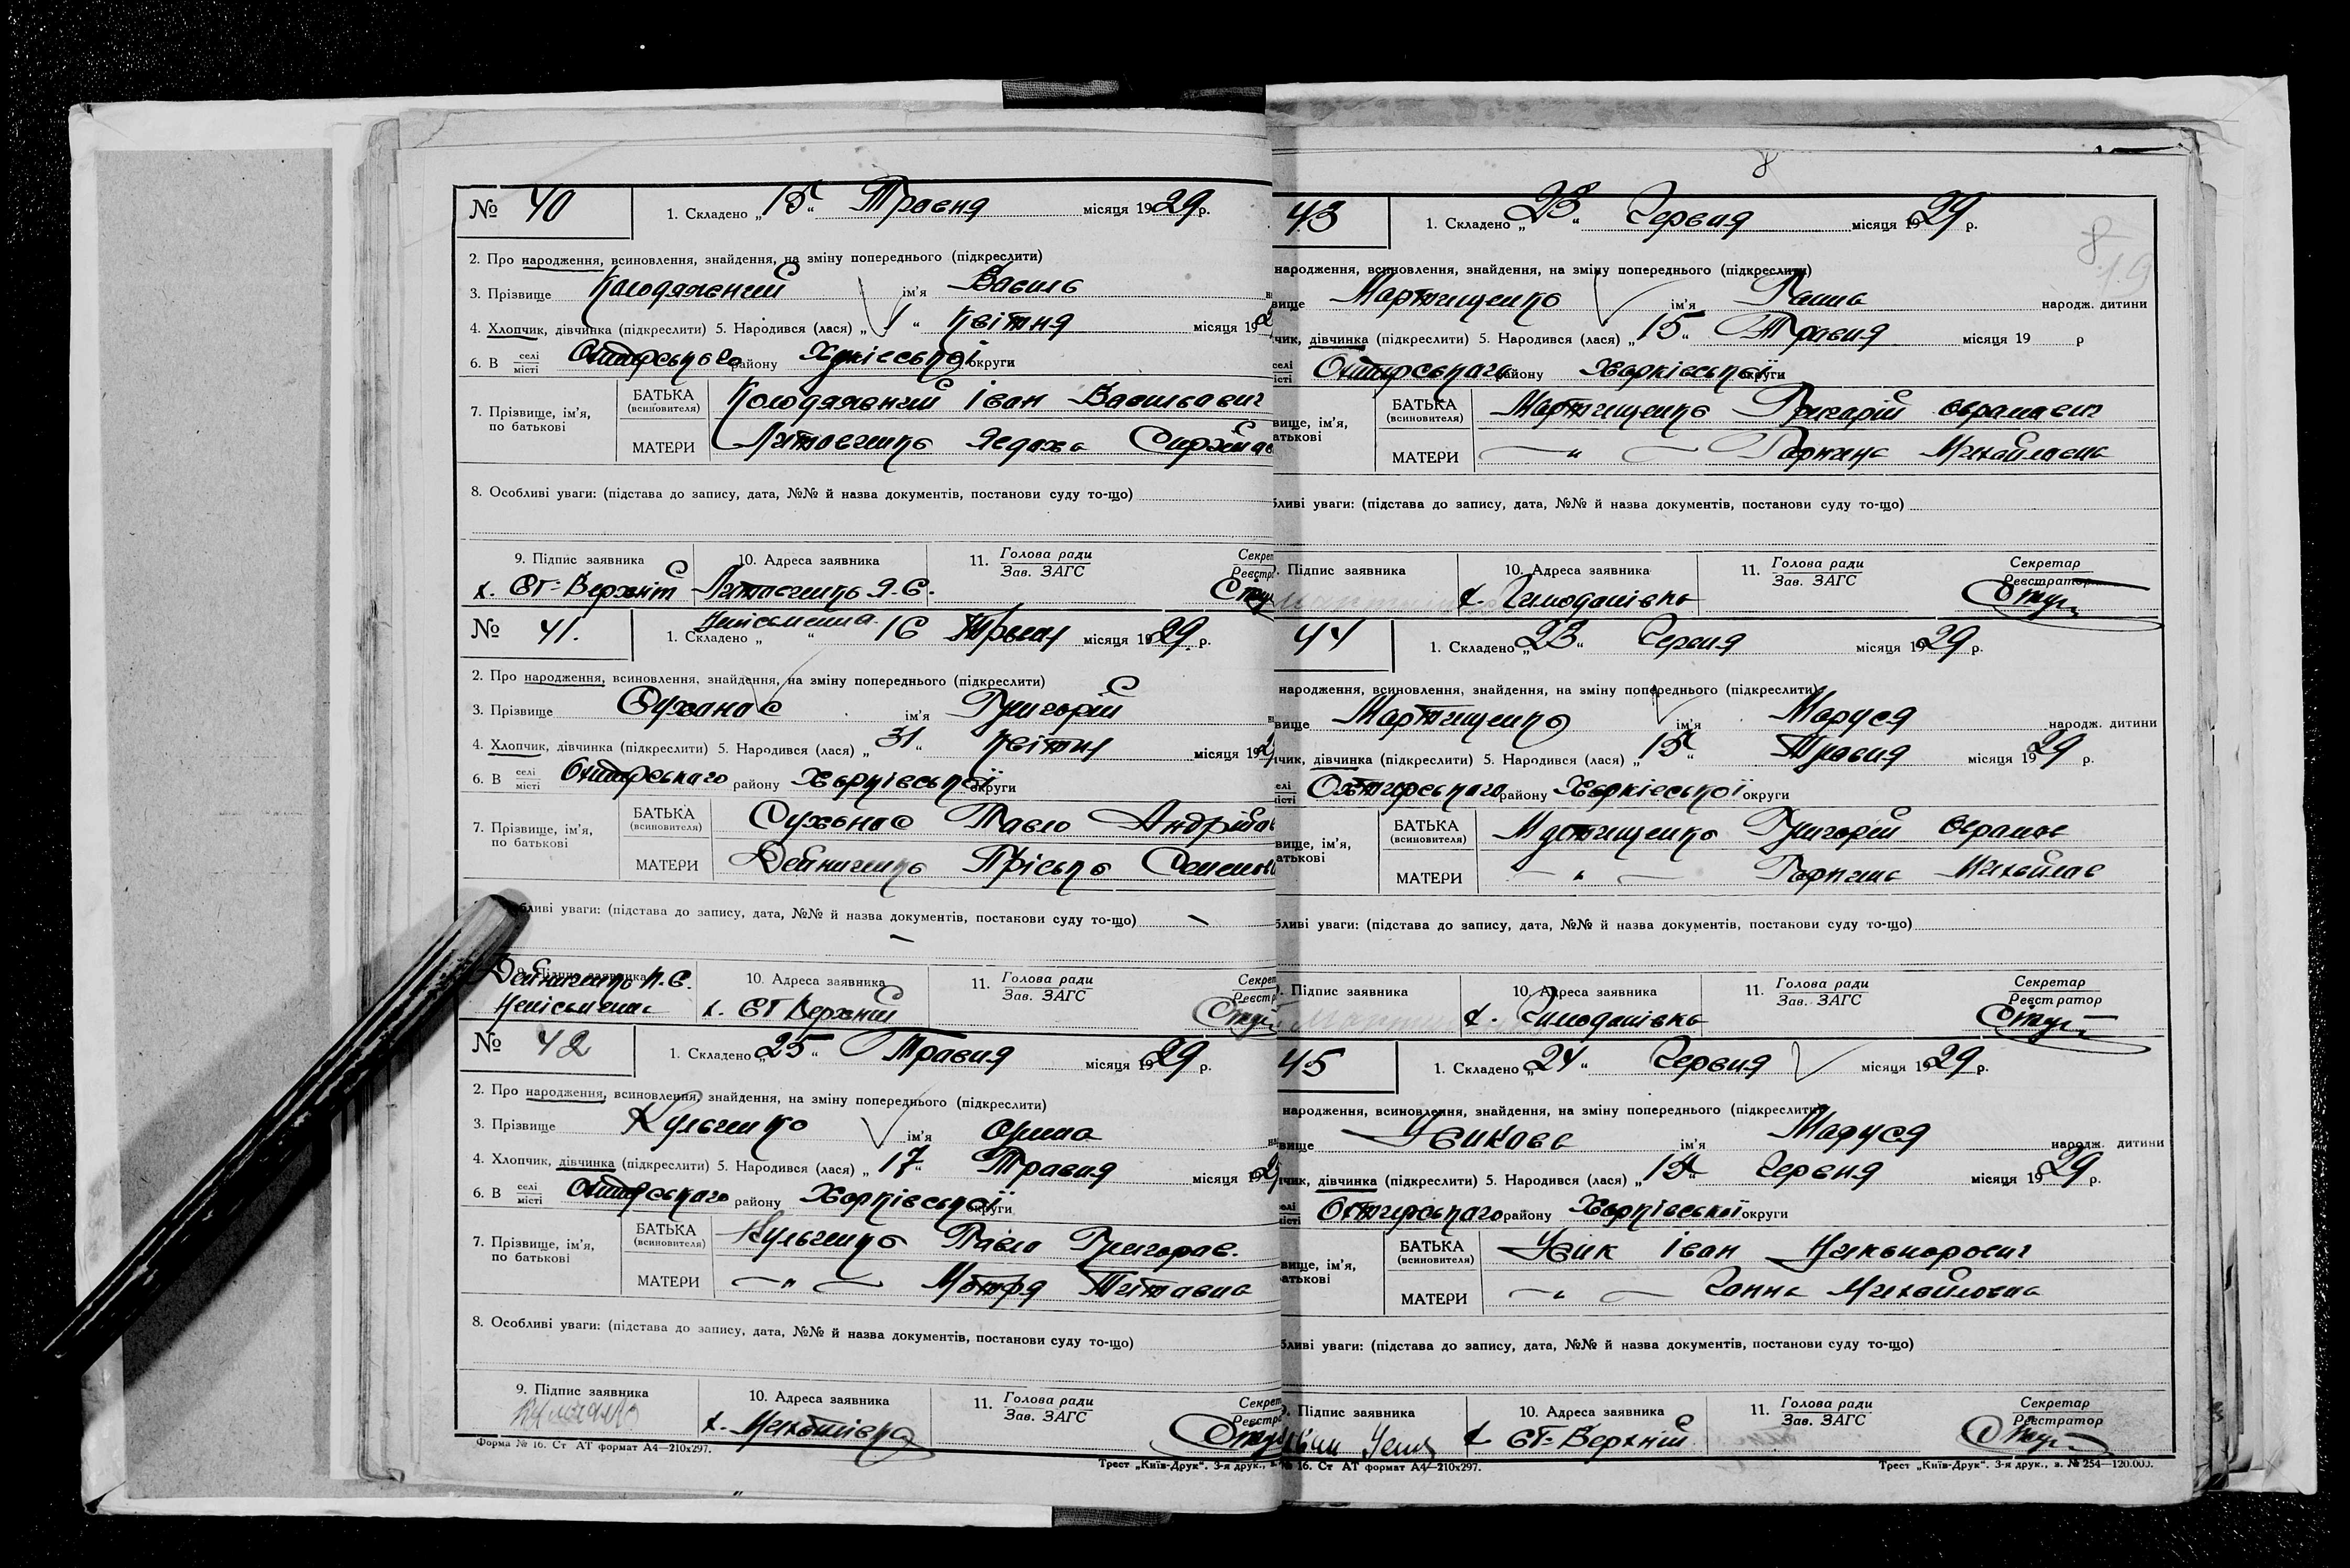 № 40
1. Складено „15“ Травня місяця 1929 р.
2. Про народження, всиновлення, знайдення, на зміну попереднього (підкреслити)
3. Прізвище Колодяжний ім'я Василь
4. Хлопчик, дівчинка (підкреслити) 5. Народився (лася) „1“ Квітня місяця 192
6. В селі місті Охтирського району Харківської округи
7. Прізвище, ім'я, по батькові
БАТЬКА (всиновителя) Колодяжний Іван Васильевич
МАТЕРИ Литовченко Явдоха
8. Особливі уваги: (підстава до запису, дата, №№ й назва документів, постанови суду то-що)
9. Підпис заявника 10. Адреса заявника 11. Голова ради Зав. ЗАГС
х. Верхній Литовченко Я. С.
Неписьменна
№ 41.
1. Складено „ “ 16 Травня місяця 1929 р.
2. Про народження, всиновлення, знайдення, на зміну попереднього (підкреслити)
3. Прізвище Сухонос ім'я Григорій
4. Хлопчик, дівчинка (підкреслити) 5. Народився (лася) „31“ Квітня місяця 192
6. В селі місті Охтирського району Харківської округи
7. Прізвище, ім'я, по батькові
БАТЬКА (всиновителя) Сухонос Павло Андрійов
МАТЕРИ Дейниченко Пріська Семенов
ливі уваги: (підстава до запису, дата, №№ й назва документів, постанови суду то-що)
9. Підпис заявника 10. Адреса заявника 11. Голова ради Зав. ЗАГС
Дейниченко П. С.
Неписьмена х. СТ Верхній
№ 42
1. Складено „25“ Травня місяця 1929 р.
2. Про народження, всиновлення, знайдення, на зміну попереднього (підкреслити)
3. Прізвище Кульченко ім'я Орина
4. Хлопчик, дівчинка (підкреслити) 5. Народився (лася) „17“ Травня місяця 192
6. В селі місті Охтирського району Харківської округи
7. Прізвище, ім'я, по батькові
БАТЬКА (всиновителя) Кульченко Павло Григоров.
МАТЕРИ — „ — Мотря Титовна
8. Особливі уваги: (підстава до запису, дата, №№ й назва документів, постанови суду то-що)
9. Підпис заявника 10. Адреса заявника 11. Голова ради Зав. ЗАГС
Форма № 16. Ст АТ формат А4—210х297.
Трест „Київ-Друк“. 3-я друк.,
8
43
1. Складено „23“ Червня місяця 1929 р.
народження, всиновлення, знайдення, на зміну попереднього (підкреслити)
вище Мартищенко ім'я Ганна народж. дитини
чик, дівчинка (підкреслити) 5. Народився (лася) „15“ Травня місяця 19 р
Охтирського району Харківської округи
вище, ім'я, атькові
БАТЬКА (всиновителя) Мартищенко Григорій Оврамович
МАТЕРИ — „ — Горпина Михайловна
ливі уваги: (підстава до запису, дата, №№ й назва документів, постанови суду то-що)
Підпис заявника 10. Адреса заявника 11. Голова ради Зав. ЗАГС Секретар Реєстратор
х. Чимоданівка
44
1. Складено „23“ Червня місяця 1929 р.
народження, всиновлення, знайдення, на зміну попереднього (підкреслити)
вище Мартищенко ім'я Маруся народж. дитини
чик, дівчинка (підкреслити) 5. Народився (лася) „15“ Травня місяця 1929 р.
Охтирського району Харківської округи
вище, ім'я, атькові
БАТЬКА (всиновителя) Мартищенко Григорій Оврамов
МАТЕРИ — „ — Горпина Михайлов
ливі уваги: (підстава до запису, дата, №№ й назва документів, постанови суду то-що)
Підпис заявника 10. Адреса заявника 11. Голова ради Зав. ЗАГС Секретар Реєстратор
х. Чимоданівка
45
1. Складено „24“ Червня місяця 1929 р.
народження, всиновлення, знайдення, на зміну попереднього (підкреслити)
вище ім'я Маруся народж. дитини
чик, дівчинка (підкреслити) 5. Народився (лася) Червня місяця 1929 р.
Охтирського району Харківської округи
вище, ім'я, атькові
БАТЬКА (всиновителя) Іван Никонорович
МАТЕРИ — „ — Ганна Михайловна
ливі уваги: (підстава до запису, дата, №№ й назва документів, постанови суду то-що)
Підпис заявника 10. Адреса заявника 11. Голова ради Зав. ЗАГС Секретар Реєстратор
х СТ Верхній
№ 16. Ст АТ формат А4—210х297.
Трест „Київ-Друк“. 3-я друк., з. № 254—120.000.